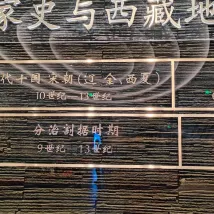 家史与西藏地
代十国 宋朝(辽、金、西夏)
10世纪—13世纪
分治割据时期
9世纪—13世纪